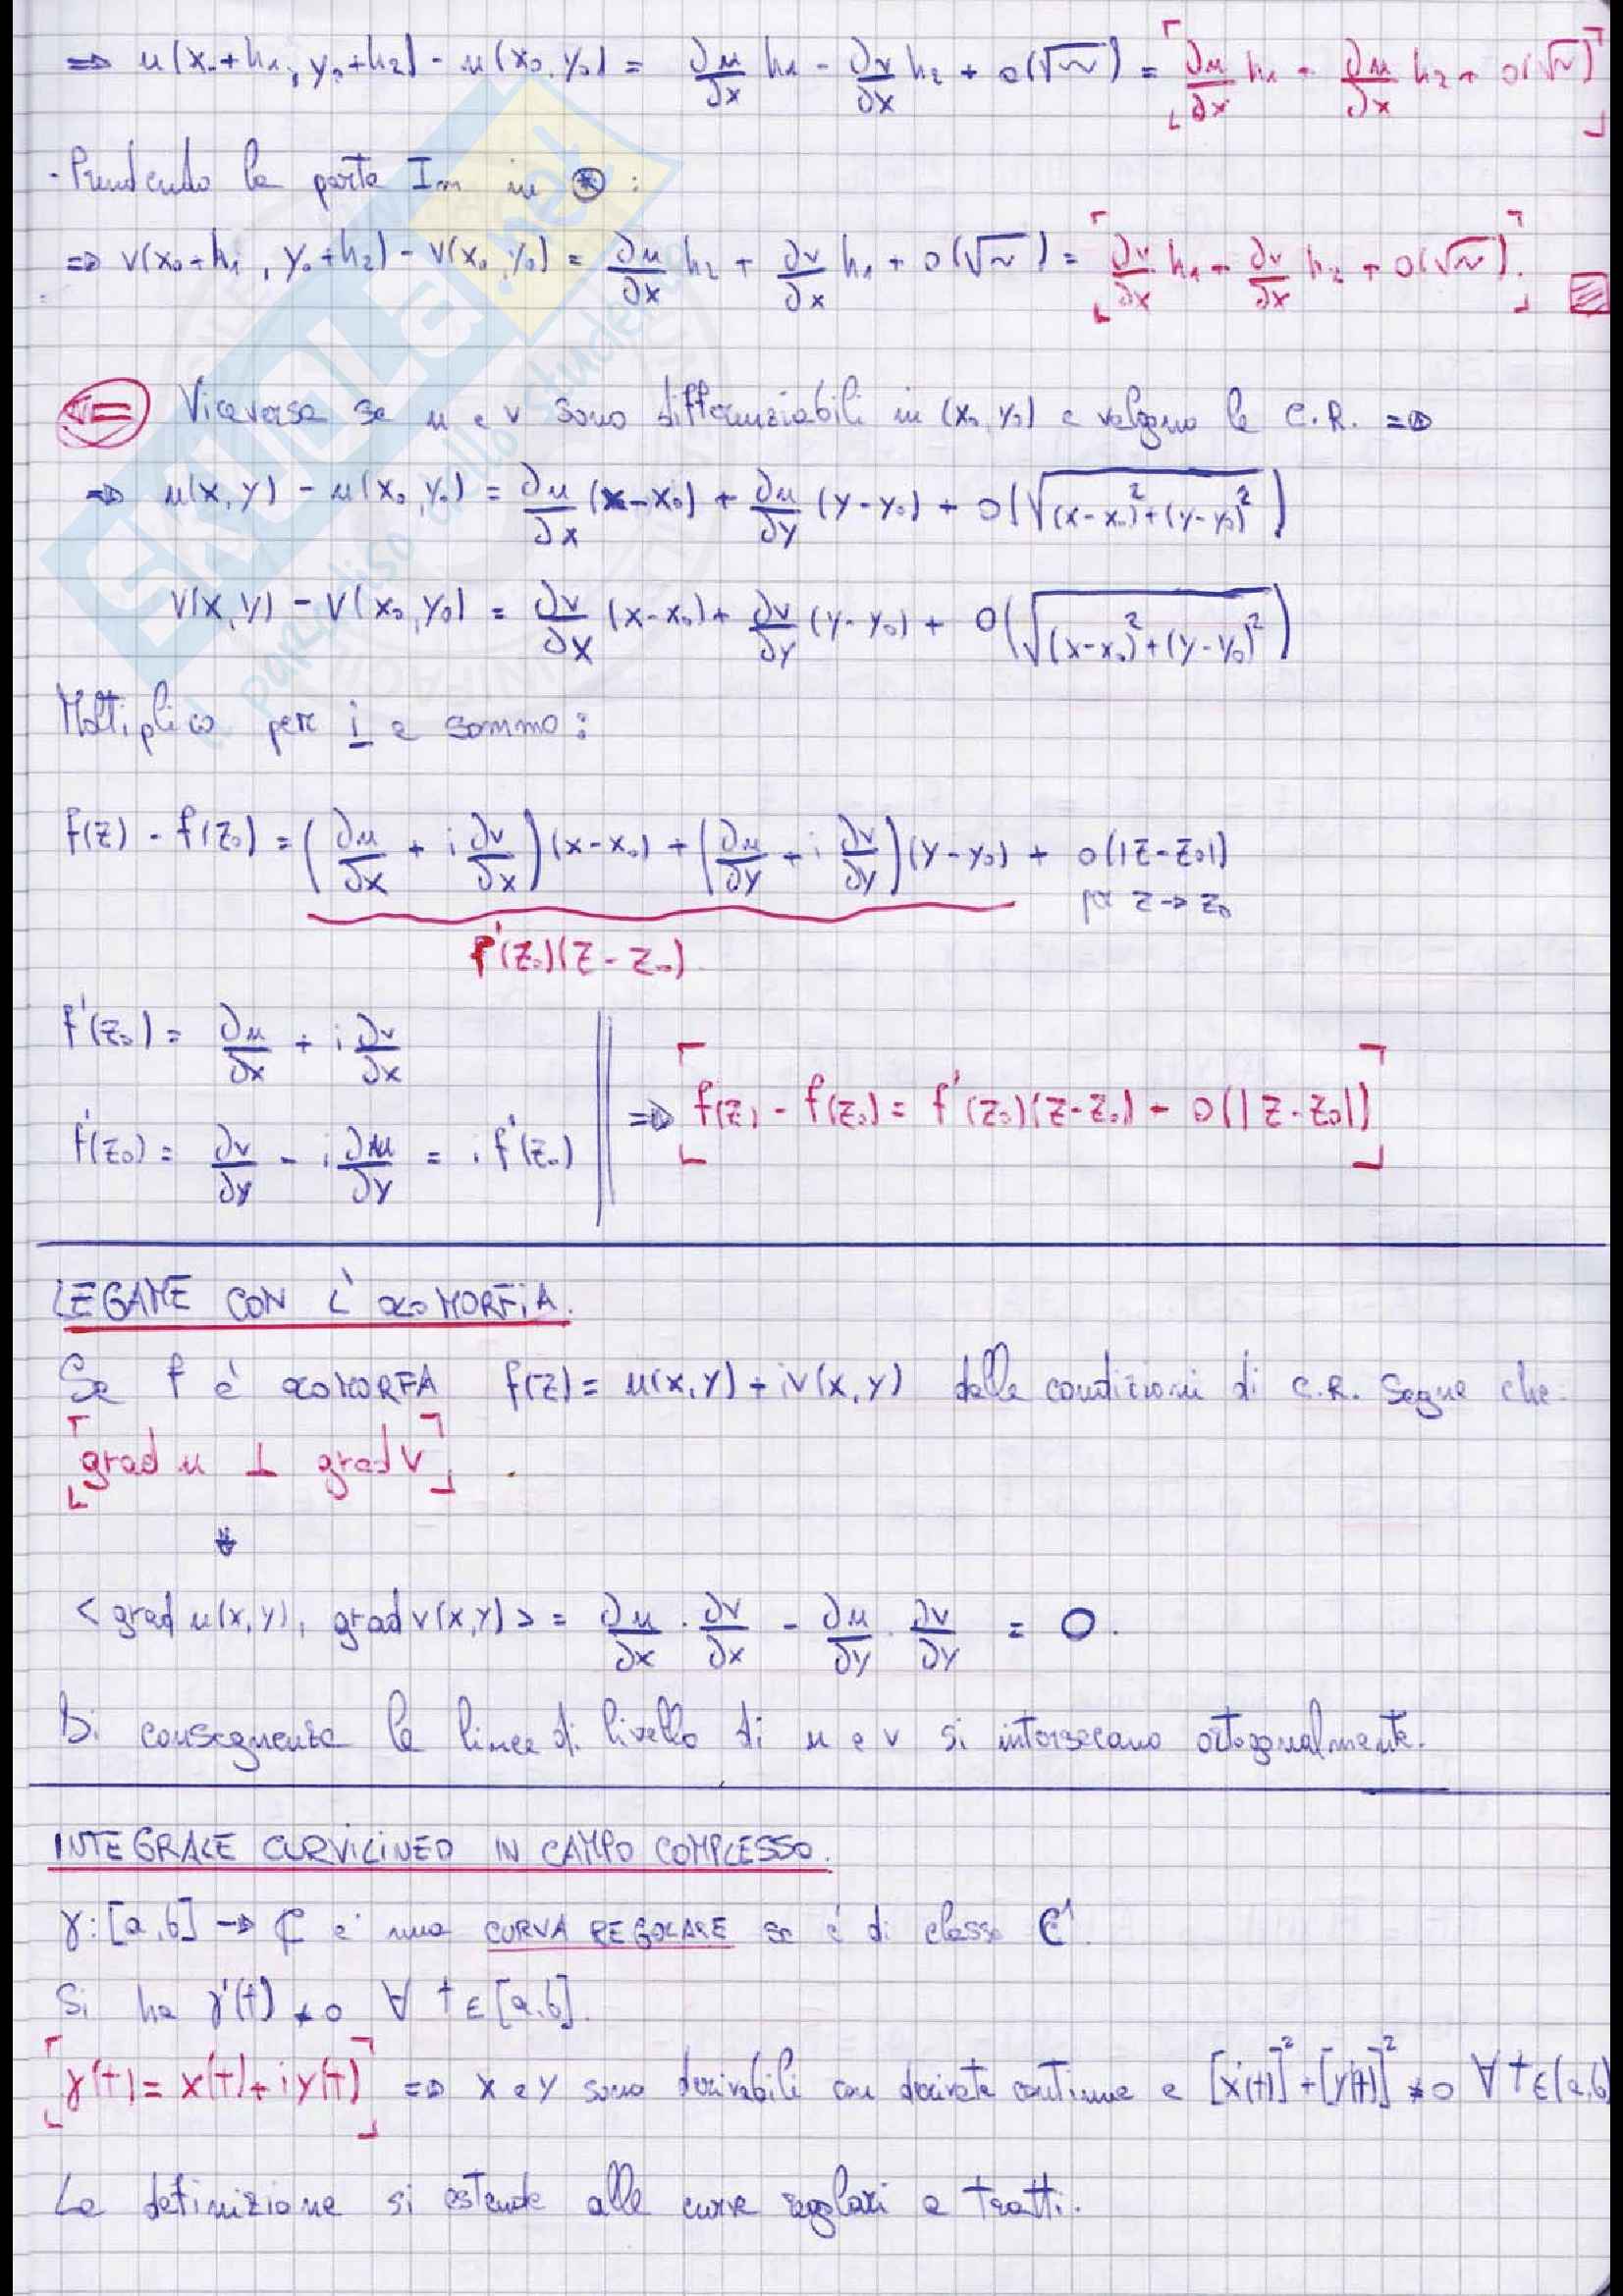 ⇒ u(x₀+h₁, y₀+h₂) - u(x₀,y₀) = ∂u/∂x h₁ - ∂v/∂x h₂ + o(√~) = ∂u/∂x h₁ + ∂u/∂x h₂ + o(√~)
- Prendendo la parte Im in ⊛ :
⇒ v(x₀+h₁, y₀+h₂) - v(x₀,y₀) = ∂u/∂x h₂ + ∂v/∂x h₁ + o(√~) = ∂v/∂x h₁ + ∂v/∂x h₂ + o(√~).
⇐ Viceversa se u e v sono differenziabili in (x₀,y₀) e valgono le C.R. ⇒
⇒ u(x,y) - u(x₀,y₀) = ∂u/∂x (x-x₀) + ∂u/∂y (y-y₀) + o(√((x-x₀)²+(y-y₀)²))
v(x,y) - v(x₀,y₀) = ∂v/∂x (x-x₀) + ∂v/∂y (y-y₀) + o(√((x-x₀)²+(y-y₀)²))
Moltiplico per i e sommo:
f(z) - f(z₀) = (∂u/∂x + i ∂v/∂x)(x-x₀) + (∂u/∂y + i ∂v/∂y)(y-y₀) + o(|z-z₀|)
per z → z₀
f'(z₀)(z-z₀)
f'(z₀) = ∂u/∂x + i ∂v/∂x
⇒ f(z) - f(z₀) = f'(z₀)(z-z₀) - o(|z-z₀|)
f'(z₀) = ∂v/∂y - i ∂u/∂y = i f'(z₀)
LEGAME CON L'OLOMORFIA.
Se f è OLOMORFA f(z) = u(x,y) + iv(x,y) dalle condizioni di C.R. segue che:
grad u ⊥ grad v
<grad u(x,y), grad v(x,y)> = ∂u/∂x · ∂v/∂x - ∂u/∂y · ∂v/∂y = 0.
Di conseguenza le linee di livello di u e v si intersecano ortogonalmente.
INTEGRALE CURVILINEO IN CAMPO COMPLESSO.
γ: [a,b] → ℂ è una CURVA REGOLARE se è di classe C¹.
Si ha γ'(t) ≠ 0 ∀ t ∈ [a,b].
γ(t) = x(t) + iy(t) ⇒ x e y sono derivabili con derivate continue e [x'(t)]² + [y'(t)]² ≠ 0 ∀ t ∈ (a,b)
La definizione si estende alle curve regolari a tratti.
SKUOLA.net
il paradiso dello studente